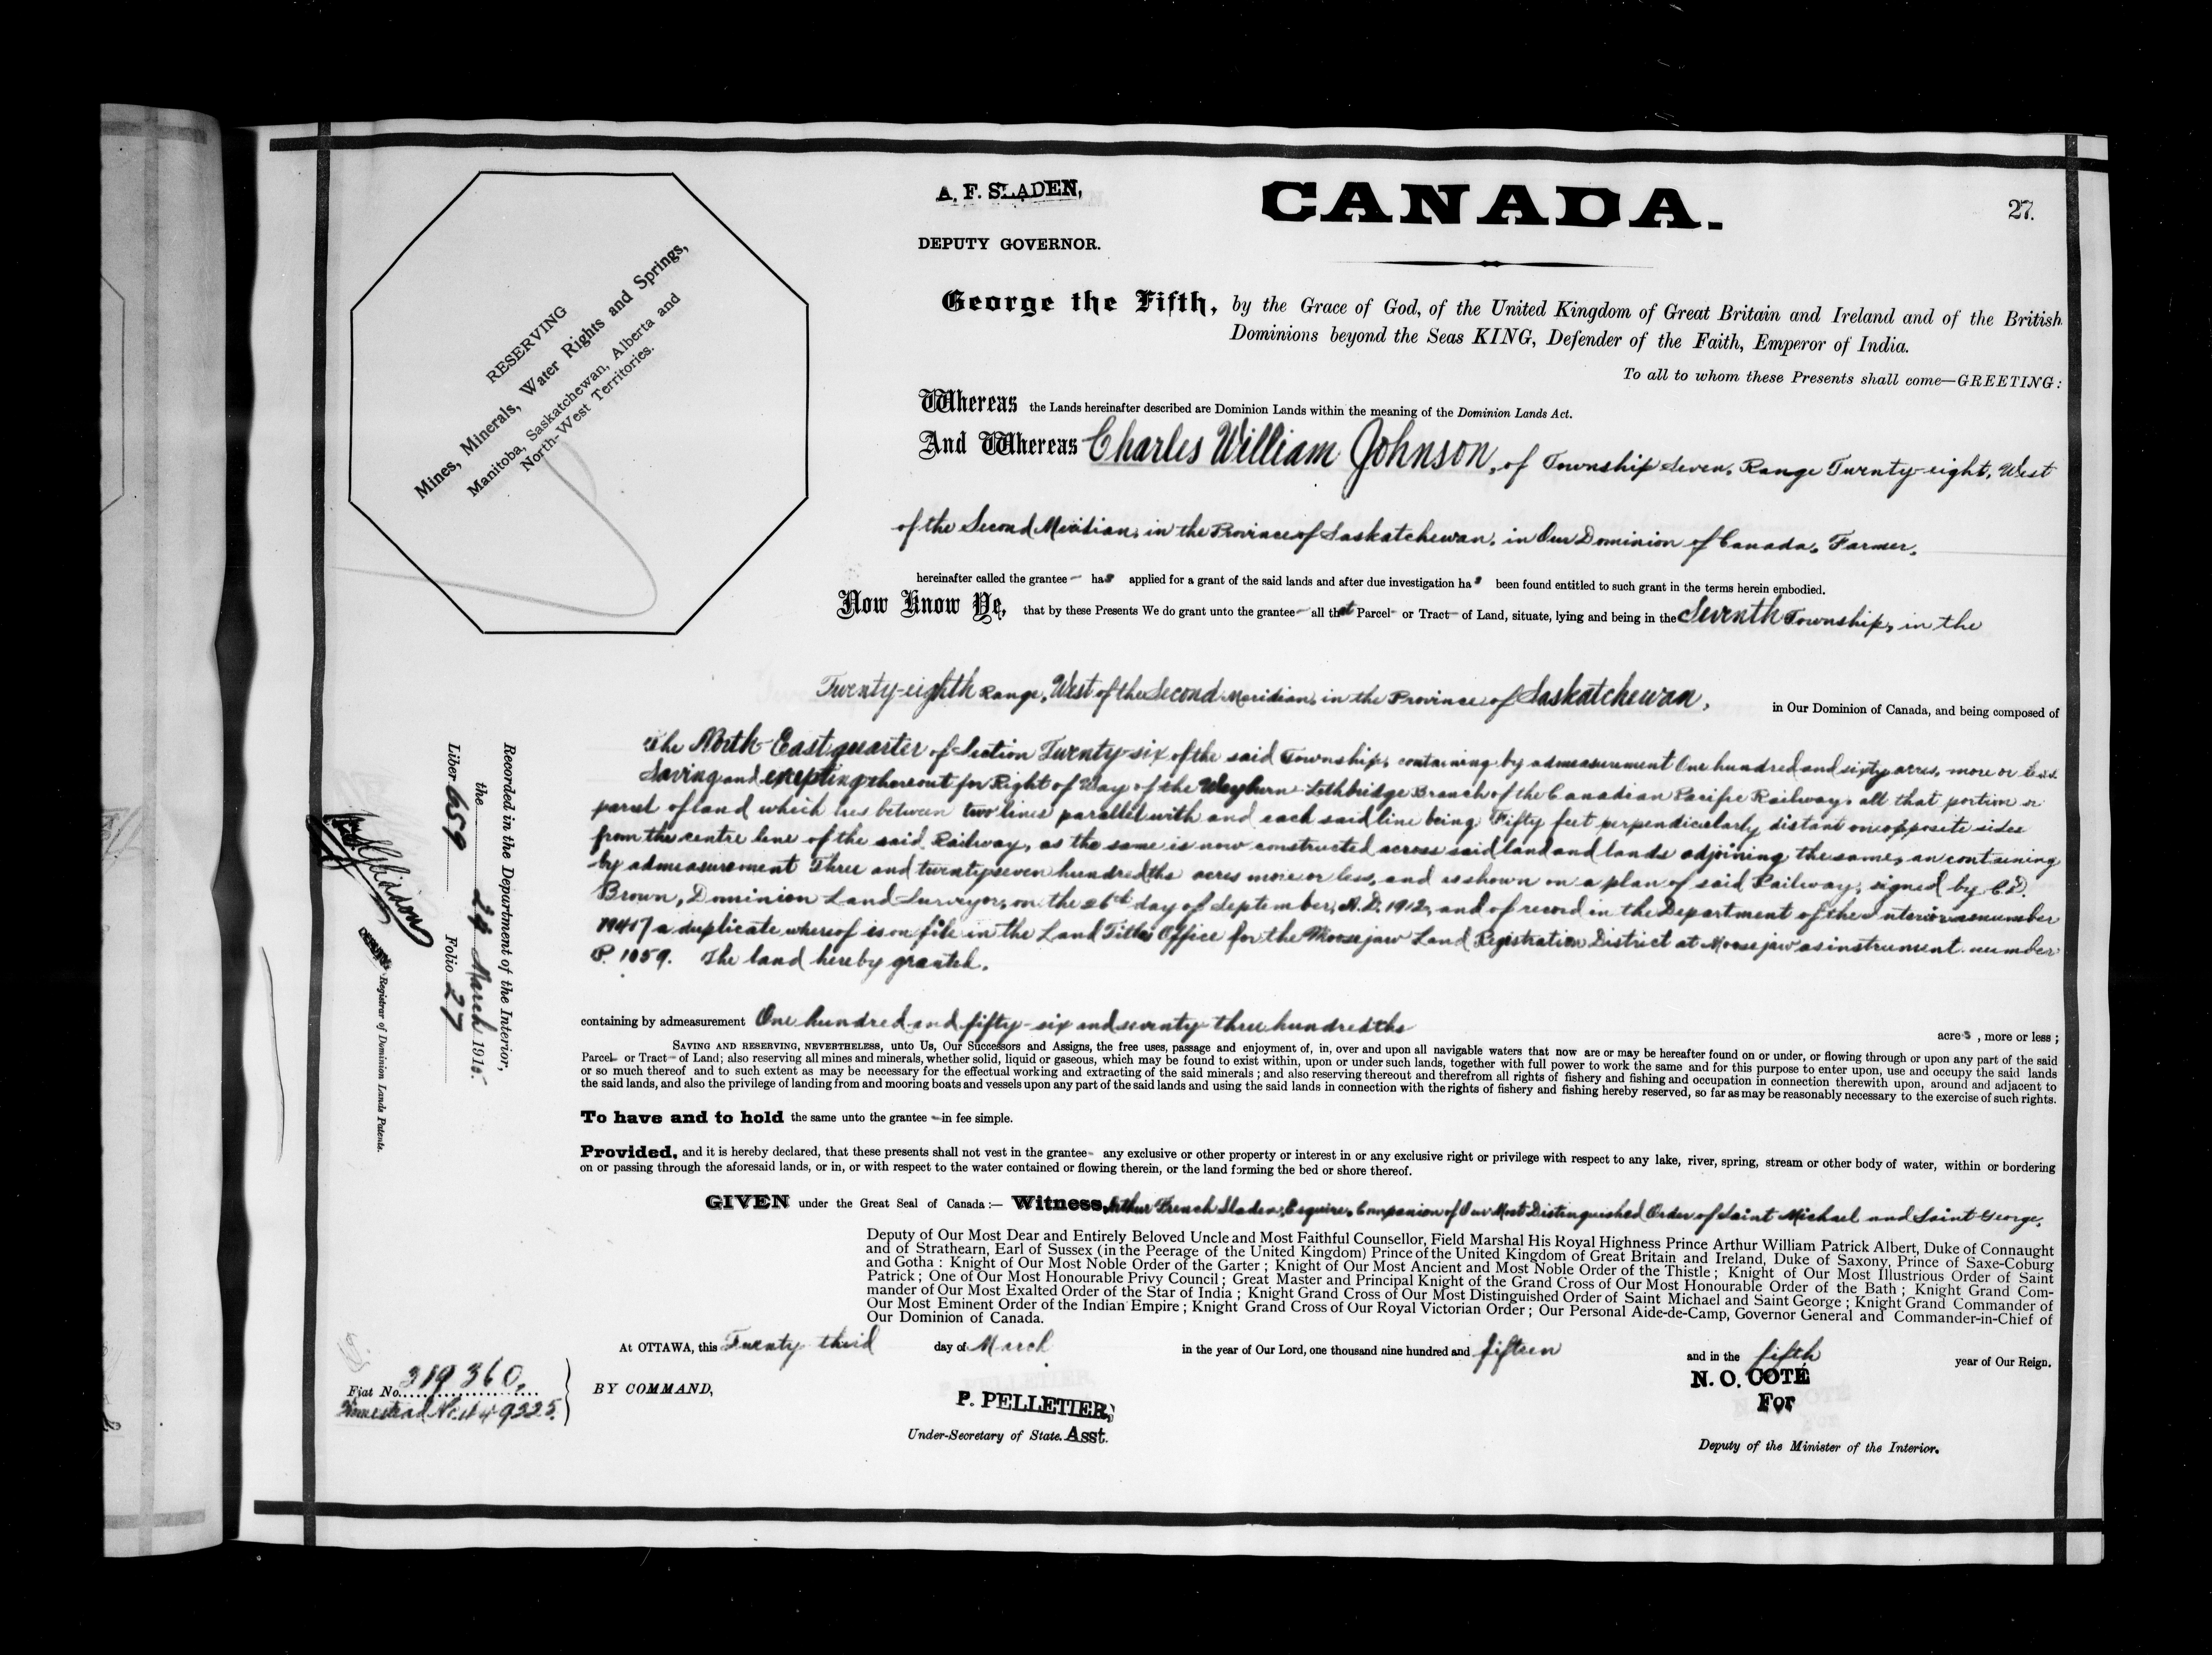 A. F. SLADEN,
DEPUTY GOVERNOR.
CANADA.
27.
RESERVING
Mines, Minerals, Water Rights and Springs,
Manitoba, Saskatchewan, Alberta and
North-West Territories.
George the Fifth, by the Grace of God, of the United Kingdom of Great Britain and Ireland and of the British
Dominions beyond the Seas KING, Defender of the Faith, Emperor of India.
To all to whom these Presents shall come—GREETING:
Whereas the Lands hereinafter described are Dominion Lands within the meaning of the Dominion Lands Act.
And Whereas Charles William Johnson, of Township Seven, Range Twenty-eight, West
of the Second Meridian, in the Province of Saskatchewan, in Our Dominion of Canada, Farmer,
hereinafter called the grantee has applied for a grant of the said lands and after due investigation has been found entitled to such grant in the terms herein embodied.
Now Know Ye, that by these Presents We do grant unto the grantee all that Parcel or Tract of Land, situate, lying and being in the Seventh Township, in the
Twenty-eighth Range, West of the Second Meridian, in the Province of Saskatchewan, in Our Dominion of Canada, and being composed of
The North-East quarter of Section Twenty-six of the said Township, containing by admeasurement One hundred and sixty acres, more or less
Saving and excepting thereout for Right of Way of the Weyburn-Lethbridge Branch of the Canadian Pacific Railway, all that portion or
parcel of land which lies between two lines parallel with and each said line being Fifty feet perpendicularly distant on opposite sides
from the centre line of the said Railway, as the same is now constructed across said land and lands adjoining the same, an containing
by admeasurement Three and twenty seven hundredths acres more or less, and as shown on a plan of said Railway, signed by C.D.
Brown, Dominion Land Surveyor, on the 26th day of September, A.D. 1912, and of record in the Department of the Interior as number
19417 a duplicate whereof is on file in the Land Titles Office for the Moosejaw Land Registration District at Moosejaw as instrument number
P. 1059. The land hereby granted,
containing by admeasurement One hundred and fifty-six and seventy three hundredths acres, more or less;
SAVING AND RESERVING, NEVERTHELESS, unto Us, Our Successors and Assigns, the free uses, passage and enjoyment of, in, over and upon all navigable waters that now are or may be hereafter found on or under, or flowing through or upon any part of the said
Parcel or Tract of Land; also reserving all mines and minerals, whether solid, liquid or gaseous, which may be found to exist within, upon or under such lands, together with full power to work the same and for this purpose to enter upon, use and occupy the said lands
or so much thereof and to such extent as may be necessary for the effectual working and extracting of the said minerals; and also reserving thereout and therefrom all rights of fishery and fishing and occupation in connection therewith upon, around and adjacent to
the said lands, and also the privilege of landing from and mooring boats and vessels upon any part of the said lands and using the said lands in connection with the rights of fishery and fishing hereby reserved, so far as may be reasonably necessary to the exercise of such rights.
To have and to hold the same unto the grantee in fee simple.
Provided, and it is hereby declared, that these presents shall not vest in the grantee any exclusive or other property or interest in or any exclusive right or privilege with respect to any lake, river, spring, stream or other body of water, within or bordering
on or passing through the aforesaid lands, or in, or with respect to the water contained or flowing therein, or the land forming the bed or shore thereof.
GIVEN under the Great Seal of Canada:— Witness, Arthur French Sladen, Esquire, Companion of Our Most Distinguished Order of Saint Michael and Saint George,
Deputy of Our Most Dear and Entirely Beloved Uncle and Most Faithful Counsellor, Field Marshal His Royal Highness Prince Arthur William Patrick Albert, Duke of Connaught
and of Strathearn, Earl of Sussex (in the Peerage of the United Kingdom) Prince of the United Kingdom of Great Britain and Ireland, Duke of Saxony, Prince of Saxe-Coburg
and Gotha: Knight of Our Most Noble Order of the Garter; Knight of Our Most Ancient and Most Noble Order of the Thistle; Knight of Our Most Illustrious Order of Saint
Patrick; One of Our Most Honourable Privy Council; Great Master and Principal Knight of the Grand Cross of Our Most Honourable Order of the Bath; Knight Grand Com-
mander of Our Most Exalted Order of the Star of India; Knight Grand Cross of Our Most Distinguished Order of Saint Michael and Saint George; Knight Grand Commander of
Our Most Eminent Order of the Indian Empire; Knight Grand Cross of Our Royal Victorian Order; Our Personal Aide-de-Camp, Governor General and Commander-in-Chief of
Our Dominion of Canada.
At OTTAWA, this Twenty third day of March in the year of Our Lord, one thousand nine hundred and fifteen and in the fifth year of Our Reign.
BY COMMAND,
P. PELLETIER,
Under-Secretary of State. Asst.
N. O. COTÉ
For
Deputy of the Minister of the Interior.
Fiat No. 319360,
Homestead No. 449325.
Recorded in the Department of the Interior,
the 24 March 1915.
Liber 659 Folio 27
Registrar of Dominion Lands Patents.